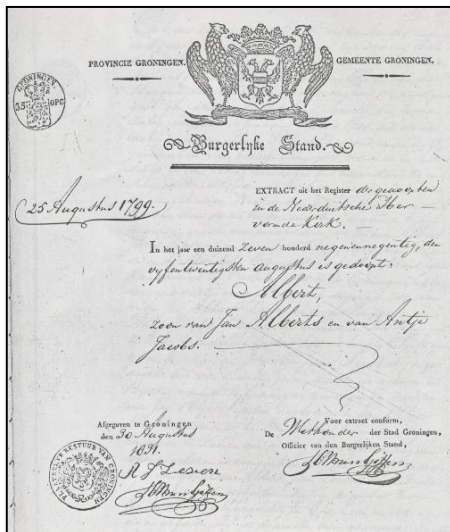 PROVINCIE GRONINGEN.
GEMEENTE GRONINGEN.
GRONINGEN
35 OPC
Burgerlyke Stand.
25 Augustus 1799.
EXTRACT uit het Register der gedoopten
in de Nederduitsche Her
vormde Kerk.
In het jaar een duizend zeven honderd negenennegentig, den
vyfentwintigsten augustus is gedoopt:
Albert,
zoon van Jan Alberts en van Antje
Jacobs.
Afgegeven te Groningen
den 30 Augustus
PLAATSELYK BESTUUR VAN GRONINGEN
Voor extract conform,
De Wethouder der Stad Groningen,
Officier van den Burgerlijken Stand,